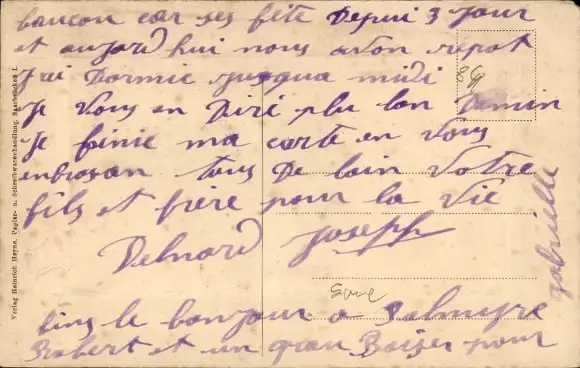 baucou car ses fête Depui 3 jour
et aujord hui nous avon répot
J ai Dormie jusqua midi
Je vous en Diré plu lon Demin
Je finie ma carte en vous
enbrasan tous De loin Votre
fils et frère pour la vie
Delnard Joseph
bins le bonjour a Palmyre
Robert et un gran Baiser pour
gabrielle
Verlag Heinrich Heyne, Papier- u. Schreibwarenhandlung, Saarbrücken I.